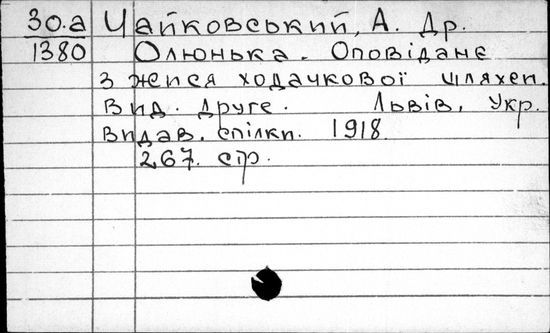 30.а Чайковський, А. Др.
1380 Олюнька. Оповіданє
з житя ходачкової шляхти.
Вид. друге. Львів, Укр.
Видав. спілки. 1918.
267. стр.